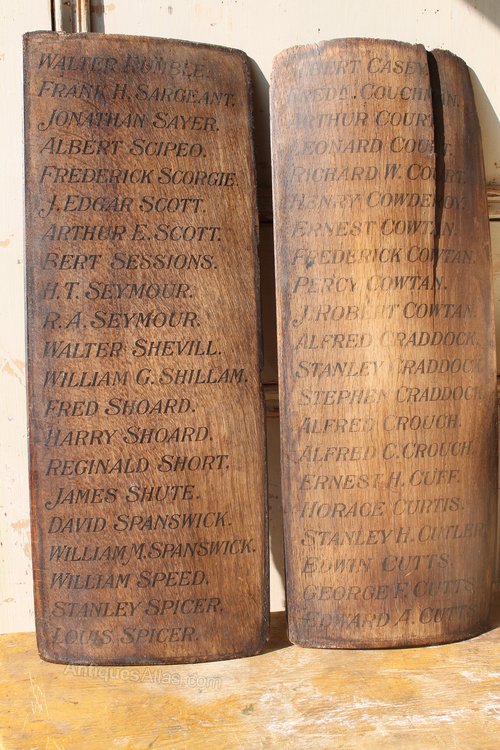 WALTER RUMBLE.
FRANK H. SARGEANT.
JONATHAN SAYER.
ALBERT SCIPEO.
FREDERICK SCORGIE.
J. EDGAR SCOTT.
ARTHUR E. SCOTT.
BERT SESSIONS.
H.T. SEYMOUR.
R.A. SEYMOUR.
WALTER SHEVILL.
WILLIAM G. SHILLAM.
FRED SHOARD.
HARRY SHOARD.
REGINALD SHORT.
JAMES SHUTE.
DAVID SPANSWICK.
WILLIAM M. SPANSWICK.
WILLIAM SPEED.
STANLEY SPICER.
LOUIS SPICER.
CASEY
COUCHMAN.
ARTHUR COURT.
LEONARD COURT.
RICHARD W. COURT.
HENRY COWDEROY.
ERNEST COWTAN.
FREDERICK COWTAN.
PERCY COWTAN.
J. ROBERT COWTAN.
ALFRED CRADDOCK.
STANLEY CRADDOCK
STEPHEN CRADDOCK
ALFRED CROUCH.
ALFRED C. CROUCH.
ERNEST H. CUFF.
HORACE CURTIS.
STANLEY H. CUTLER
EDWIN CUTTS
GEORGE F. CUTTS
EDWARD A. CUTTS
AntiquesAtlas.com